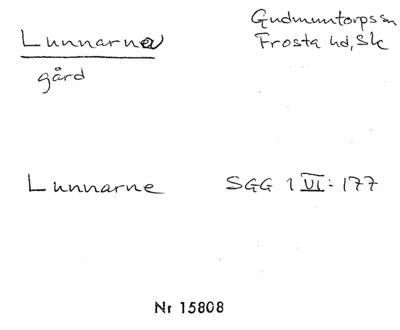 Lunnarna
Gudmuntorps sn
Frosta hd, Sk
gård
Lunnarne
SGG 1 VI: 177
Nr 15808